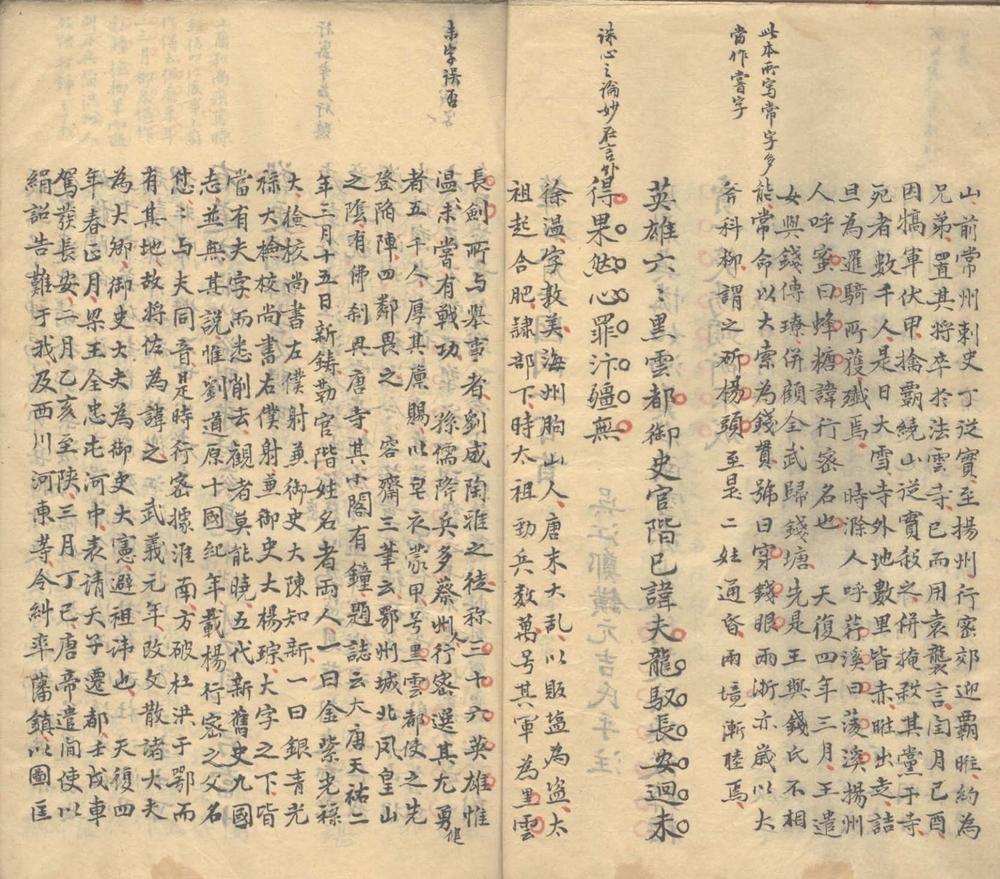 此本所寫常字多
當作嘗字
誅心之論妙在言外
山前常州刺史丁從實至揚州行密郊迎霸睢約為
兄弟置其將卒於法雲寺已而用袁襲言閏月己酉
因犒軍伏甲擒霸繞山從實殺之併掩殺其黨于寺
死者數千人是日大雪寺外地數里皆赤睢出走詰
旦為邏騎所獲殲焉時滁人呼荇溪曰菱溪揚州
人呼蜜曰蜂糖諱行密名也天復四年三月王遣
女與錢傳璙併顧全武歸錢塘先是王與錢氏不相
能常命以大索為錢貫號曰穿錢眼兩浙亦歲以大
斧科柳謂之斫楊頭至是二姓通昏兩境漸睦焉
英雄六〻黑雲都御史官階已諱夫龍馭長安迴未
得果然心罪汴疆無
徐溫字敦美海州朐山人唐末大亂以販塩為盜太
祖起合肥隸部下時太祖勁兵數萬号其軍為黑雲
未字誤否
長劍所與舉事者劉威陶雅之徒称三十六英雄惟
溫未嘗有戰功孫儒降兵多蔡州人行密選其尤勇健
者五千人厚其廩賜以皂衣蒙甲号黑雲都使之先
登陷陣四鄰畏之容齋三筆云鄂州城北凤皇山
之陰有佛刹曰唐寺其小閣有鐘題誌云大唐天祐二
年三月十五日新鑄勒官階姓名者兩人一曰金紫光祿
大檢校尚書左僕射兼御史大陳知新一曰銀青光
祿大檢校尚書右僕射兼御史大楊琮大字之下皆
當有夫字而悉削去觀者莫能曉五代新舊史九國
志並無其說惟劉道原十國紀年載楊行密之父名
怤〻与夫同音是時行密據淮南方破杜洪于鄂而
有其地故將佐為諱之武義元年改文散諸大夫
為大卿御史大夫為御史大憲避祖讳也天復四
年春正月梁王全忠屯河中表请天子遷都壬戌車
駕發長安二月乙亥至陝三月丁巳唐帝遣间使以
絹詔告難于我及西川河東等令糾率藩鎮以圖匡